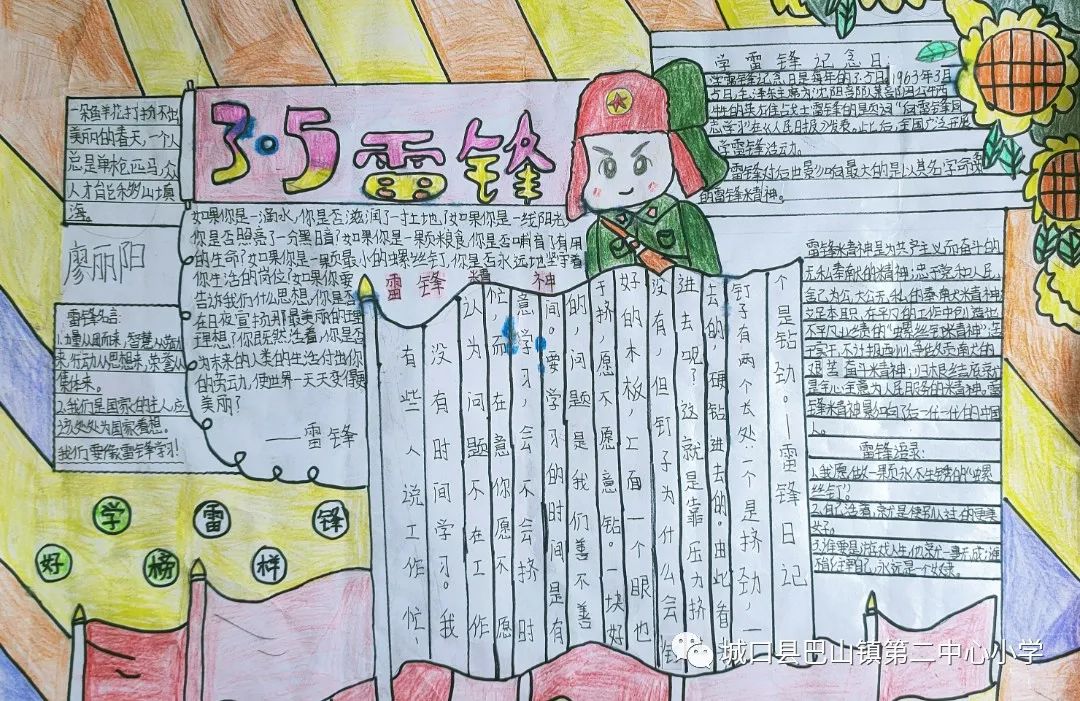 3·5雷锋
一朵鱼羊花打扮不出
美丽的春天,一个人
总是单枪匹马,众
人才能移山填
海。
廖丽阳
雷锋名言:
1.力量从团而来,智慧从劳
来,行动从思想来,荣誉从
集体来。
2.我们是国家的主人应
该处处为国家着想。
我们要像雷锋学习!
如果你是一滴水,你是否滋润了一寸土地?如果你是一线阳光,
你是否照亮了一分黑暗?如果你是一颗粮食,你是否哺育了有用
的生命?如果你是一颗最小的螺丝钉,你是否永远地坚守着
你生活的岗位?如果你要
告诉我们什么思想,你是否
在日夜宣扬那最美丽的理
理想?你既然活着,你是否
为未来的人类的生活付出你
的劳动,使世界一天天变得更
美丽?
——雷锋
学雷锋记念日
学雷锋记念日是每年的3.5日,1963年3月
5日,毛泽东主席为沈阳
牲的英雄战士雷锋的题词“向雷锋同
志学习”在《人民日报》发表。此后,全国广泛开展
学雷锋活动。
雷锋对后世影响最大的是以其名字命
的雷锋精神。
雷锋精神
个是钻劲。——雷锋日记
钉子有两个长处:一个是挤劲,一
去的,硬钻进去的。由此看
进去呢?这就是靠压力挤
没有,但钉子为什么会
好的木板,上面一个眼也
于挤,愿不愿意钻。一块好
的,问题是我们善不善
间。要学习的时间是有
意学习,会不会挤时
忙,而在意你愿不愿
认为问题不在工作
没有时间学习。我
有些人说工作忙,
雷锋精神是为共产主义而奋斗的
无私奉献的精神;忠于党和人民、
舍己为公、大公无私的奉献精神;
立足本职、在平凡的工作中创造出
不平凡业绩的“螺丝钉精神”;苦
干实干、不计报酬、争做贡献的
艰苦奋斗精神;归根结底就
是全心全意为人民服务的精神。雷
锋精神影响了后一代一代的中国
人。
雷锋语录:
1.我愿做一颗永不生锈的“螺
丝钉”。
2.自己活着,就是使别人过的更美
好。
3.谁要是游戏人生,他就一事无成;谁
不能主宰自己,永远是一个奴隶。
学雷锋
好榜样
城口县巴山镇第二中心小学